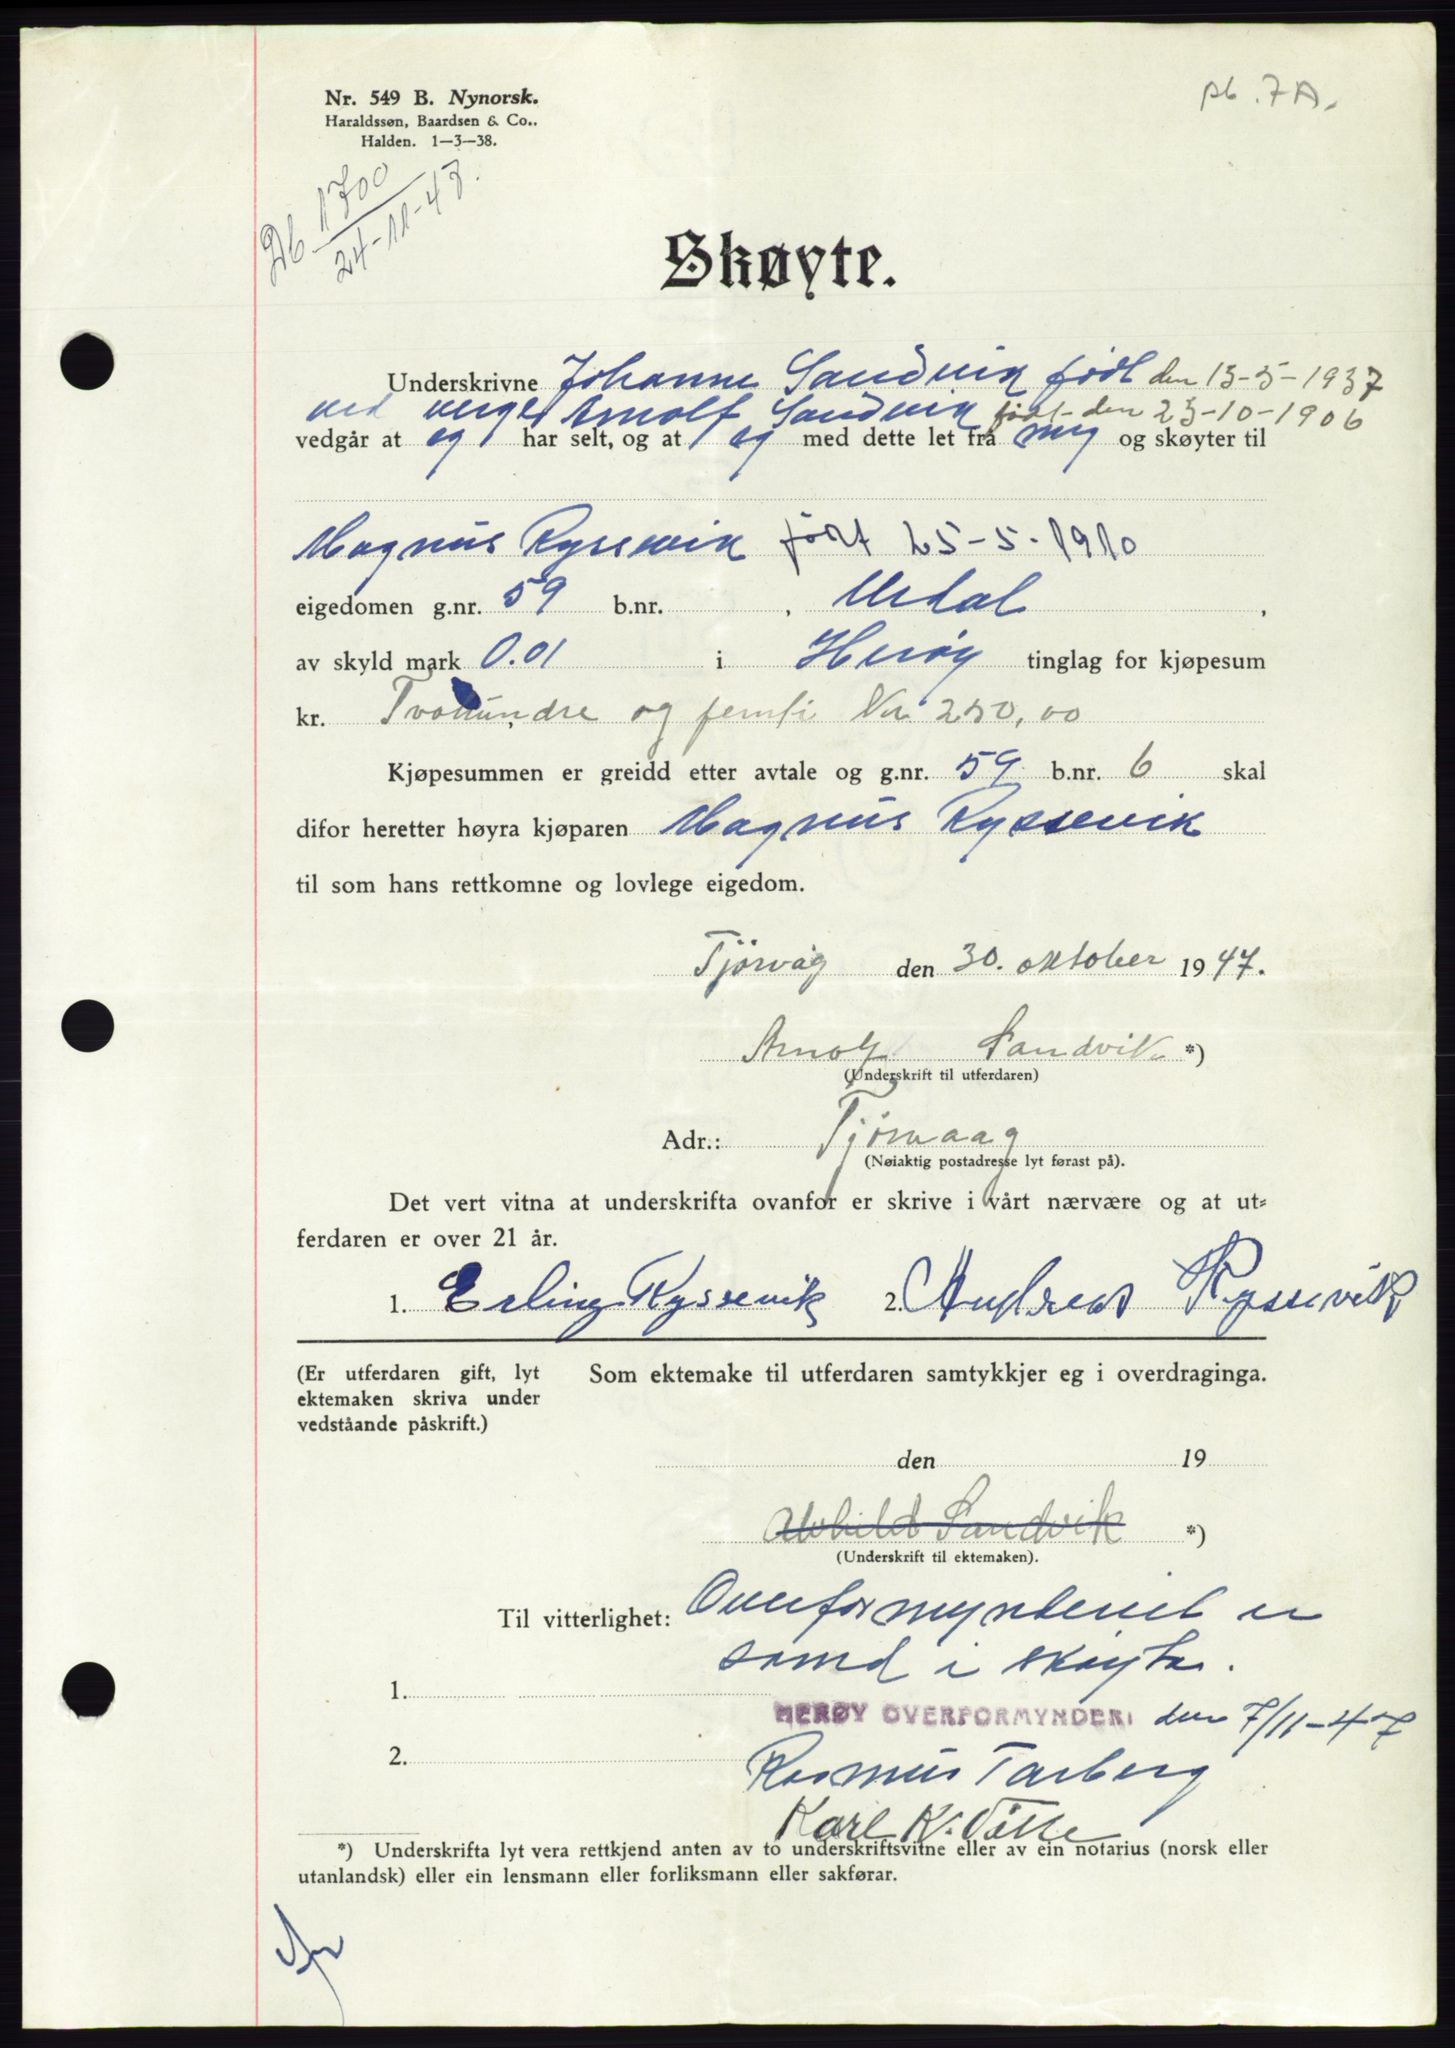 pb. 7A.
Nr. 549 B. Nynorsk.
Haraldssøn, Baardsen & Co..
Halden. 1—3—38.
Db 1700
24-11-47.
Skøyte.
Underskrivne Johanne Sandvik født den 13-5-1937
ved verge Arnolf Sandvik født den 23-10-1906
vedgår at eg har selt, og at eg med dette let frå meg og skøyter til
Magnus Ryssevik født 25-5-1910
eigedomen g.nr. 59 b.nr. , Urdal ,
av skyld mark 0.01 i Herøy tinglag for kjøpesum
kr. Tvohundre og femti Kr 250,00
Kjøpesummen er greidd etter avtale og g.nr. 59 b.nr. 6 skal
difor heretter høyra kjøparen Magnus Ryssevik
til som hans rettkomne og lovlege eigedom.
Tjørvåg den 30. oktober 1947.
Arnolf Sandvik *)
(Underskrift til utferdaren)
Adr.: Tjørvaag
(Nøiaktig postadresse lyt førast på).
Det vert vitna at underskrifta ovanfor er skrive i vårt nærvære og at ut-
ferdaren er over 21 år.
1. Erling Ryssevik 2. Andreas Ryssevik
(Er utferdaren gift, lyt
ektemaken skriva under
vedståande påskrift.)
Som ektemake til utferdaren samtykkjer eg i overdraginga.
den 19
Sandvik *)
(Underskrift til ektemaken).
Til vitterlighet: Overformynderiet er
samd i skøyta.
1.
HERØY OVERFORMYNDERI den 7/11-47
2.
Rasmus Tarberg
Karl K.
*) Underskrifta lyt vera rettkjend anten av to underskriftsvitne eller av ein notarius (norsk eller
utanlandsk) eller ein lensmann eller forliksmann eller sakførar.